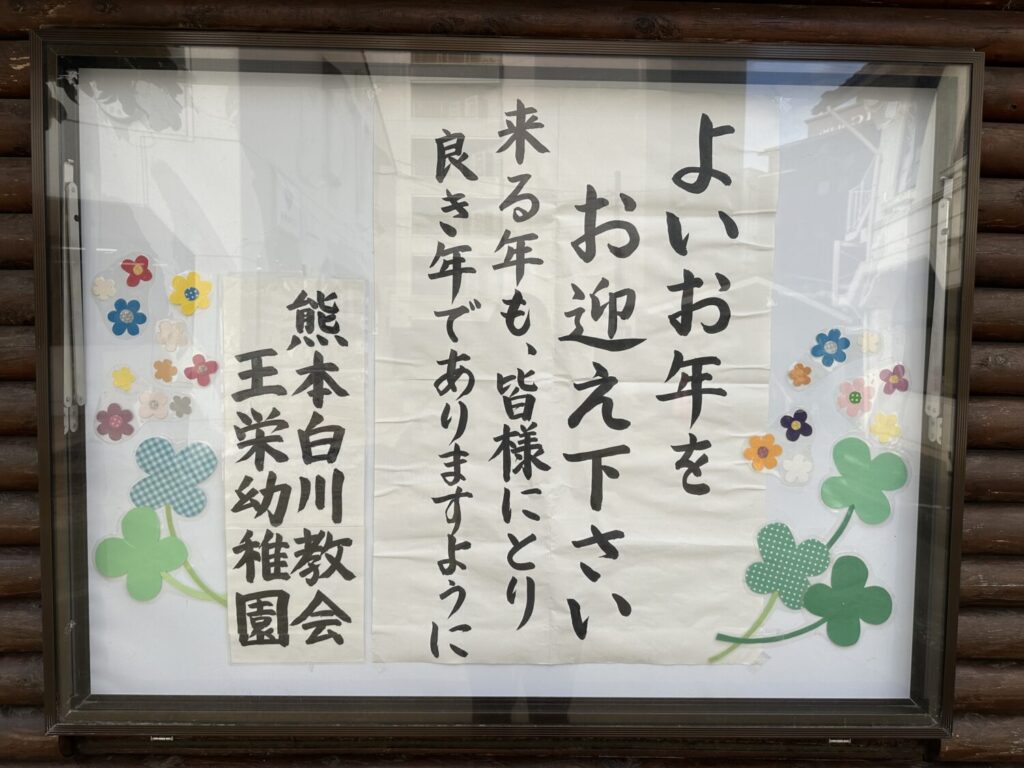 よいお年を
お迎え下さい
来る年も、皆様にとり
良き年でありますように
熊本白川教会
王栄幼稚園